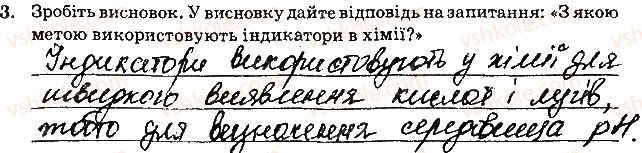 3. Зробіть висновок. У висновку дайте відповідь на запитання: «З якою
метою використовують індикатори в хімії?»
Індикатори використовують у хімії для
швидкого виявлення кислот і лугів,
тобто для визначення середовища pH.